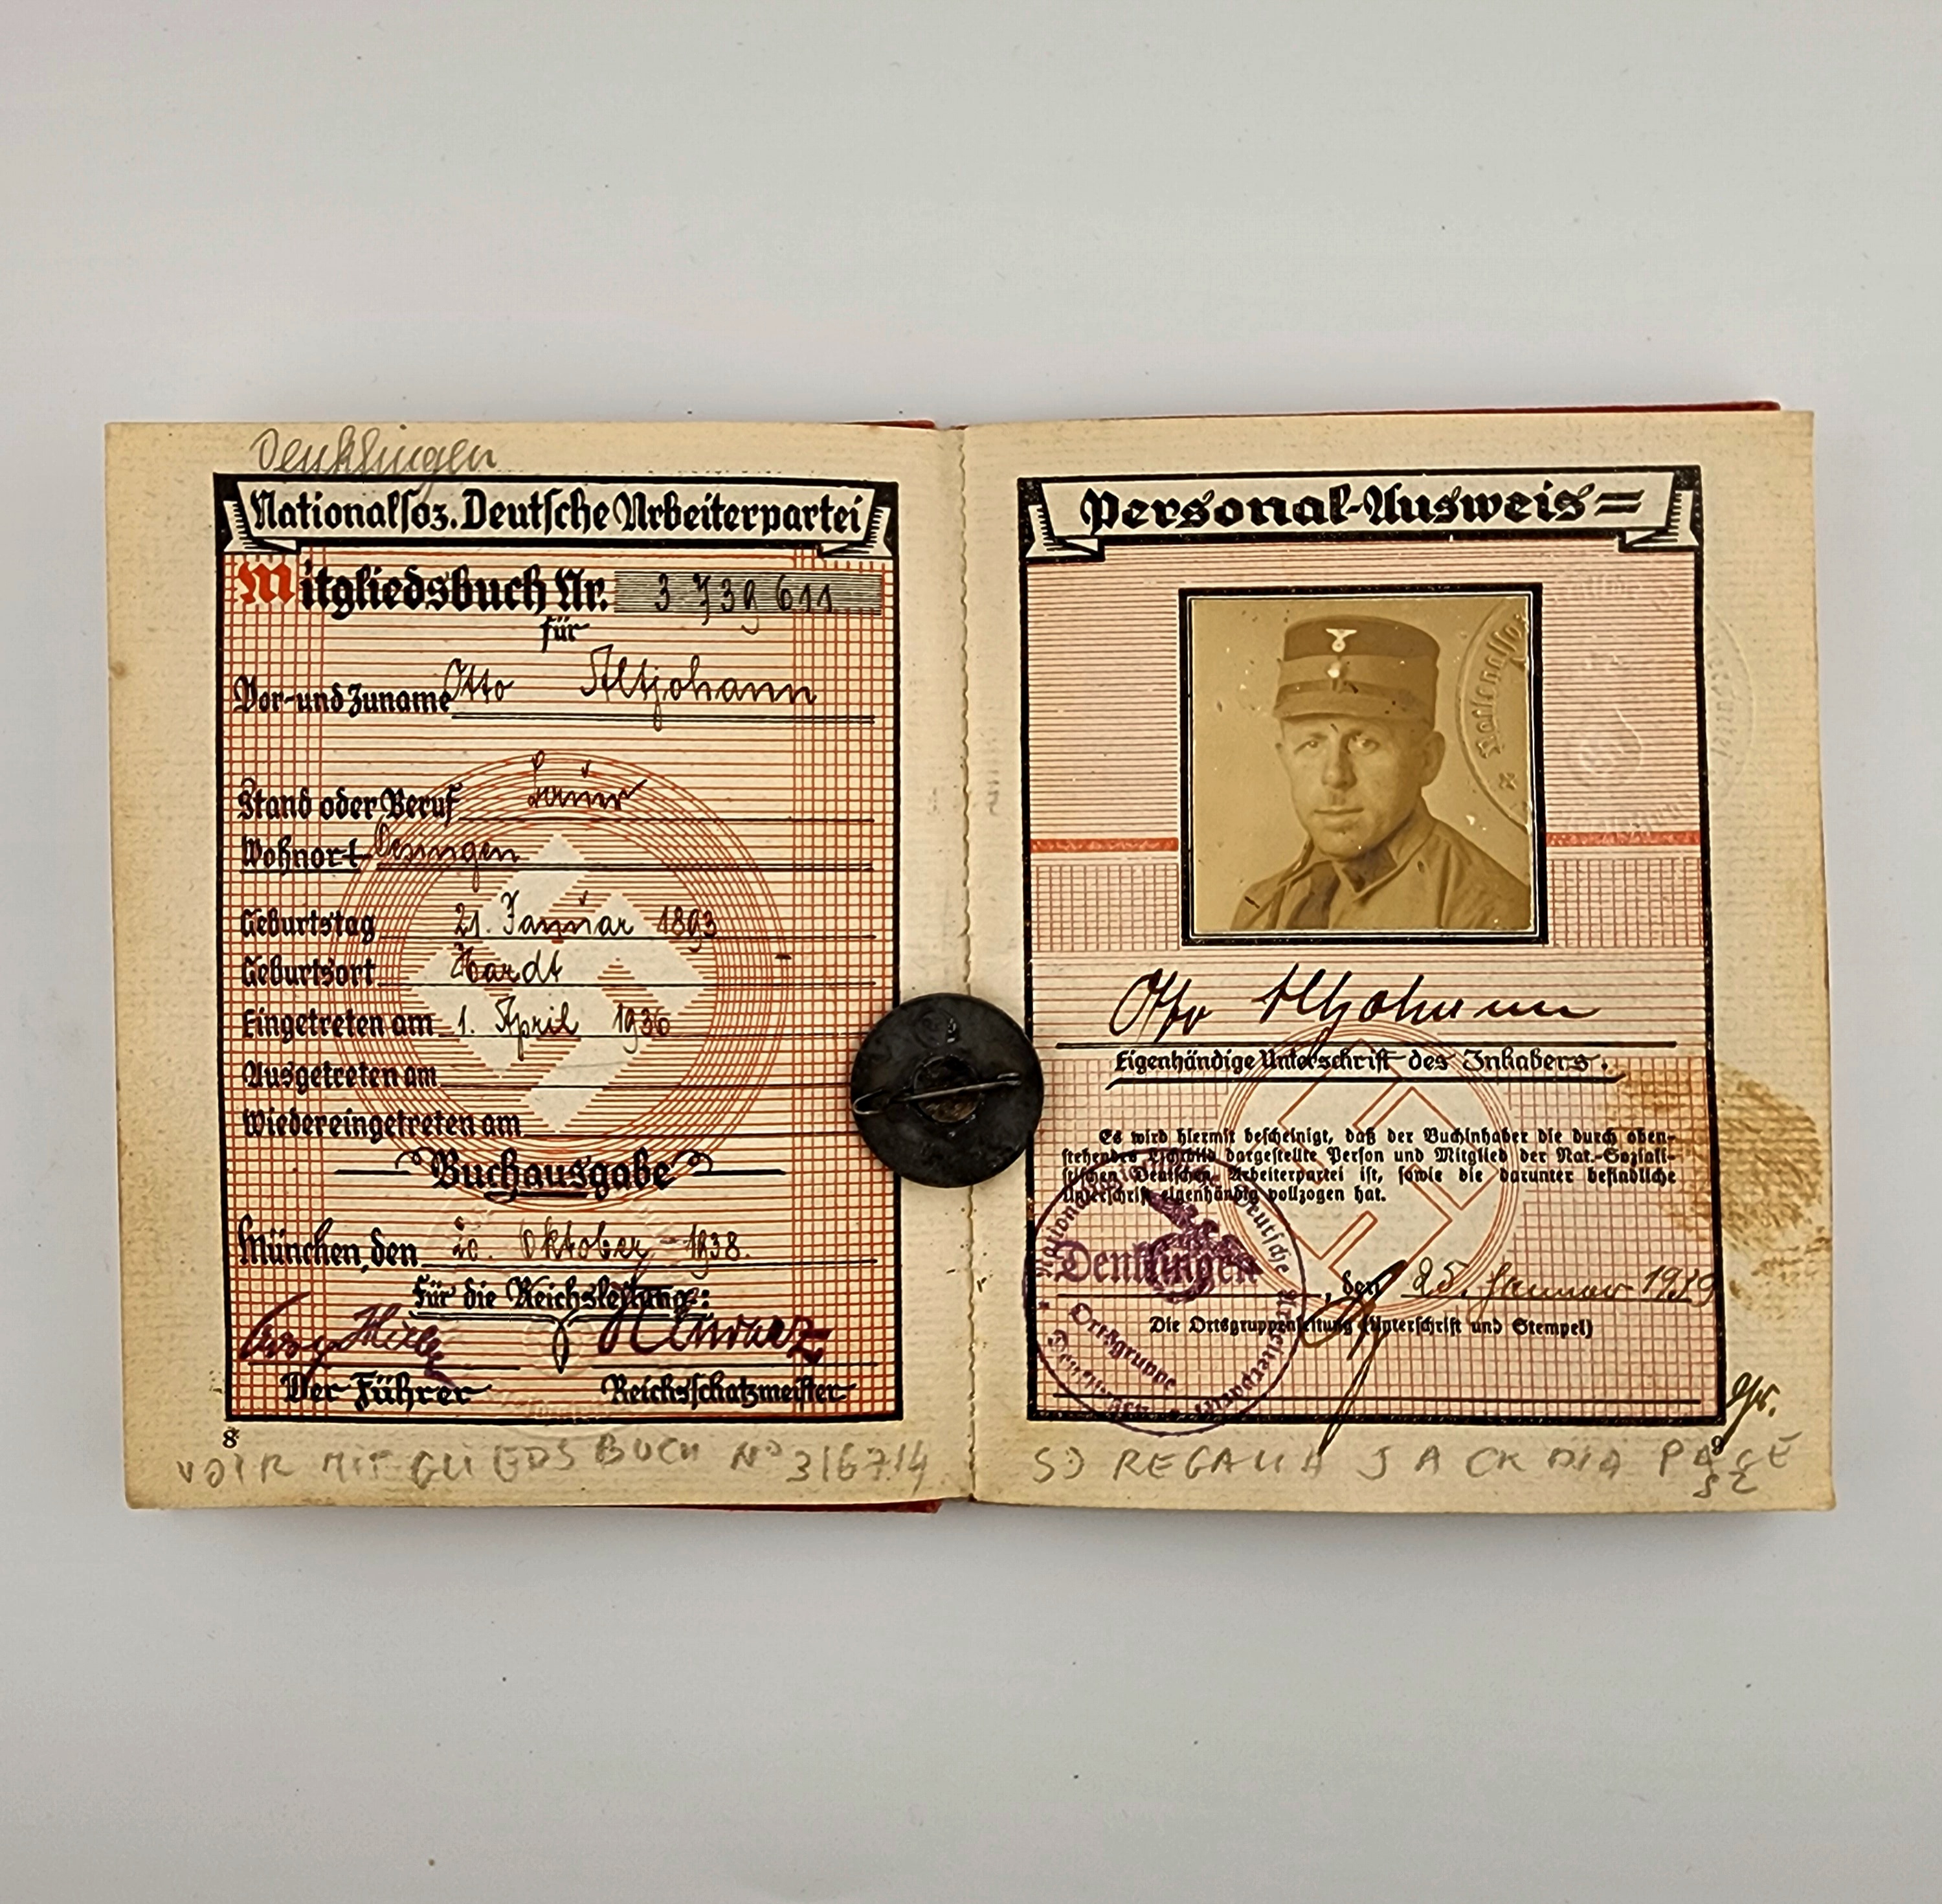 Denklingen
Nationalsoz. Deutsche Arbeiterpartei
Mitgliedsbuch Nr. 3 739 611
für
Vor- und Zuname Otto Altjohann
Stand oder Beruf
Wohnort
Geburtstag 21. Januar 1893
Geburtsort Hardt
Eingetreten am 1. April 1936
Ausgetreten am
Wiedereingetreten am
Buchausgabe
München, den 20. Oktober 1938.
Für die Reichsleitung:
Der Führer Reichsschatzmeister
8
VOIR MITGLIEDSBUCH N° 316714
Personal-Ausweis
Otto Altjohann
Eigenhändige Unterschrift des Inhabers.
Es wird hiermit bescheinigt, daß der Buchinhaber die durch oben-
stehendes Lichtbild dargestellte Person und Mitglied der Nat.-Soziali-
stischen Deutschen Arbeiterpartei ist, sowie die darunter befindliche
Unterschrift eigenhändig vollzogen hat.
Denklingen, den 25. Januar 1939
Die Ortsgruppenleitung (Unterschrift und Stempel)
Nationalsozialistische Deutsche Arbeiterpartei
Ortsgruppe
Denklingen
9
SD REGALIA JACK DIA PAGE
52